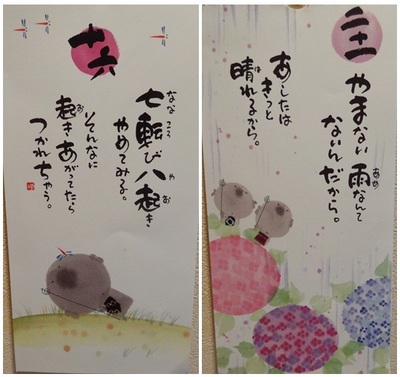 十六
なな ころ や お
七転び八起き
やめてみる。
そんなに
お
起きあがってたら
つかれちゃう。
二十一
やまない
あめ
雨なんて
ないんだから。
あしたは
きっと
は
晴れるから。